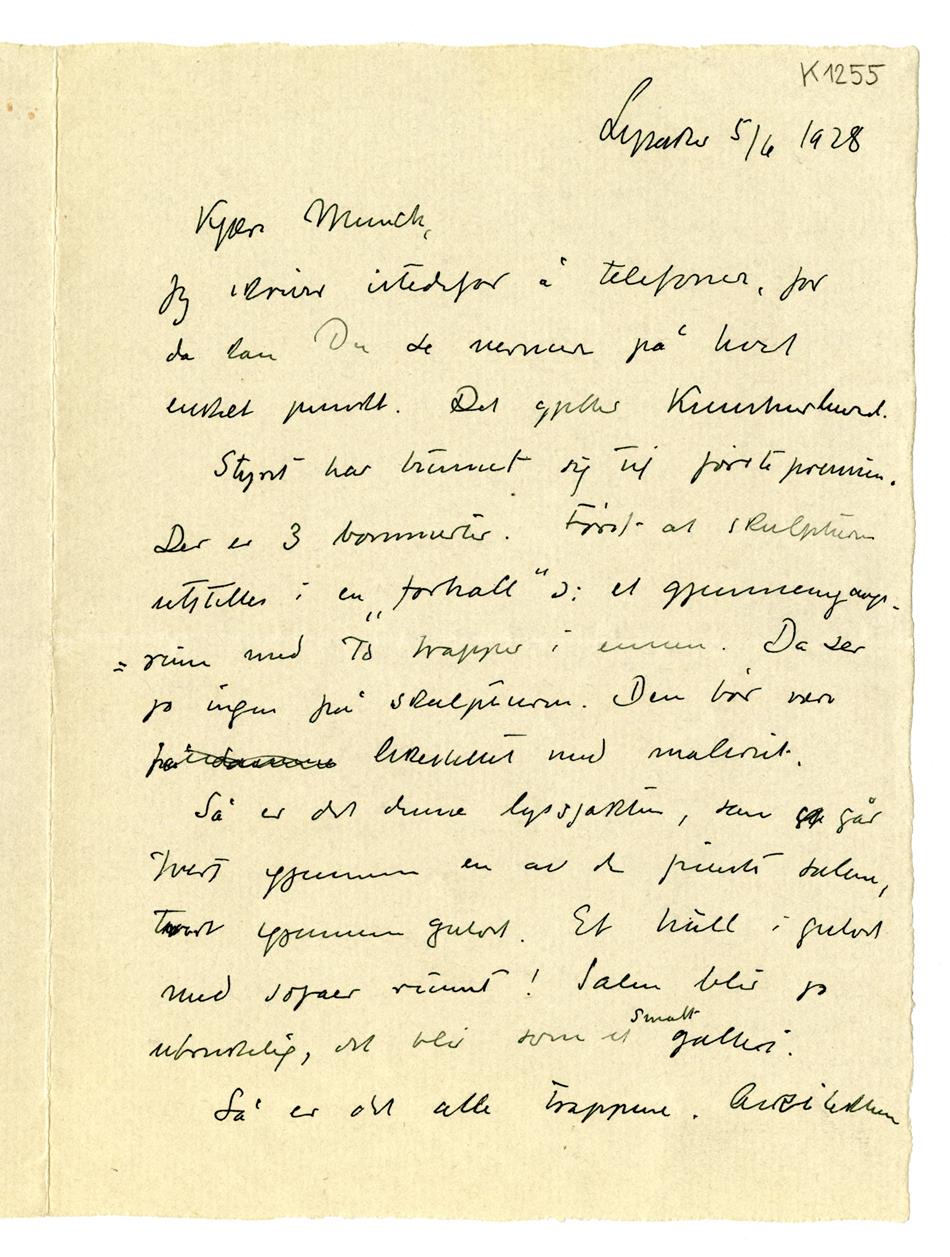 K1255
Lysaker 5/6 1928
Kjære Munch,
Jeg skriver istedefor å telefonere, for
da kan Du se nermere på hvert
enkelt punkt. Det gjelder Kunstnerhuset.
Styret har bunnet sig til første premien.
Der er 3 bommerter. Først at skulpturen
utstilles i en „forhall" ɔ: et gjennemgangs-
=rum med To trapper i ennen. Da ser
jo ingen på skulpturen. Den bør være
likestillet med maleriet.
Så er det denne lyssjakten, som går
tvert gjennem en av de fineste salene,
tvert gjennem gulvet. Et hull i gulvet
med sofaer rundt! Salen blir jo
ubrukelig, det blir som et smalt galleri.
Så er det alle trappene. Arkitekten